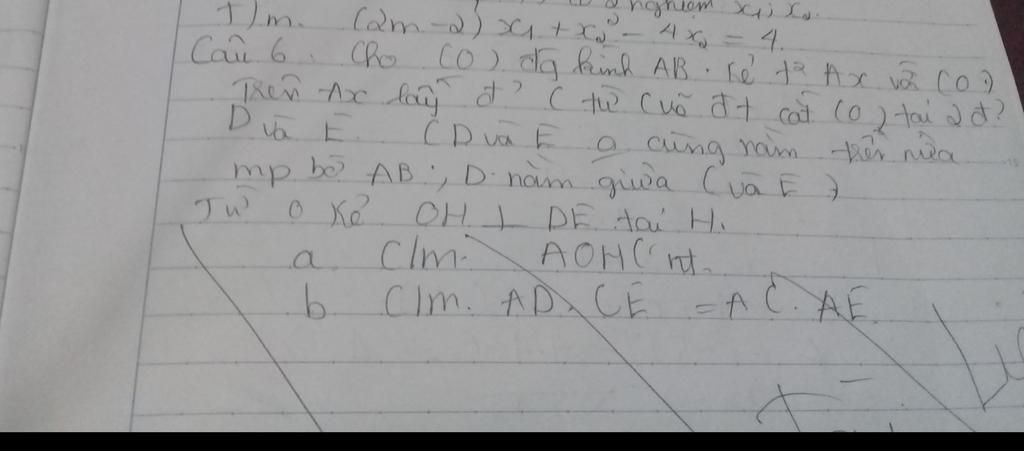 nghiệm x₁; x₂.
T)m. (2m-2) x₁ + x₂² - 4x₂ = 4.
Câu 6. Cho (O) đg kính AB. Kẻ t² Ax và (O)
Trên Ax lấy đ' C từ C vẽ đt cắt (O) tại 2 đ'
D và E (D và E o cùng nằm trên nửa
mp bờ AB; D nằm giữa C và E)
Từ O kẻ OH ⊥ DE tại H.
a C/m. AOHC nt.
b C/m. AD. CE = AC. AE